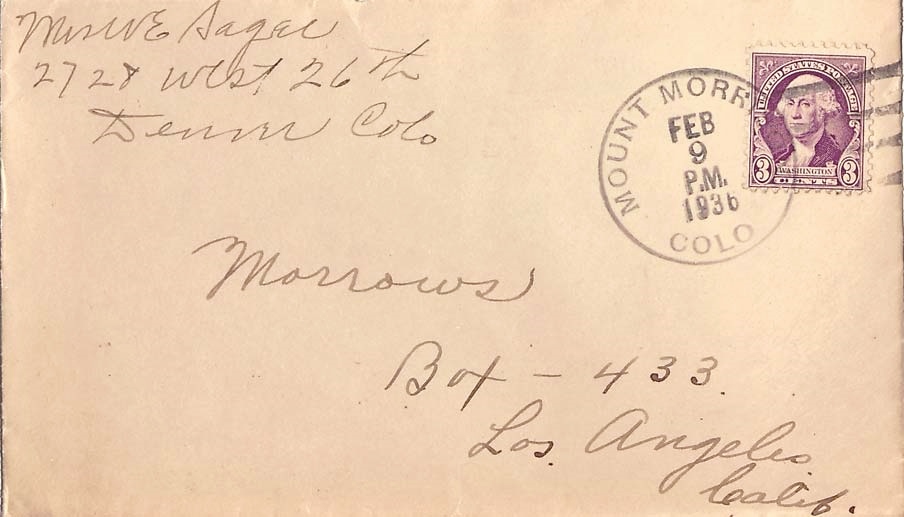 Mrs W E Sager
2728 West 26th
Denver Colo
MOUNT MORR
FEB
9
P.M.
1936
COLO
UNITED STATES POSTAGE
3 WASHINGTON 3
CENTS
Morrows
Box - 433
Los Angeles
Calif.